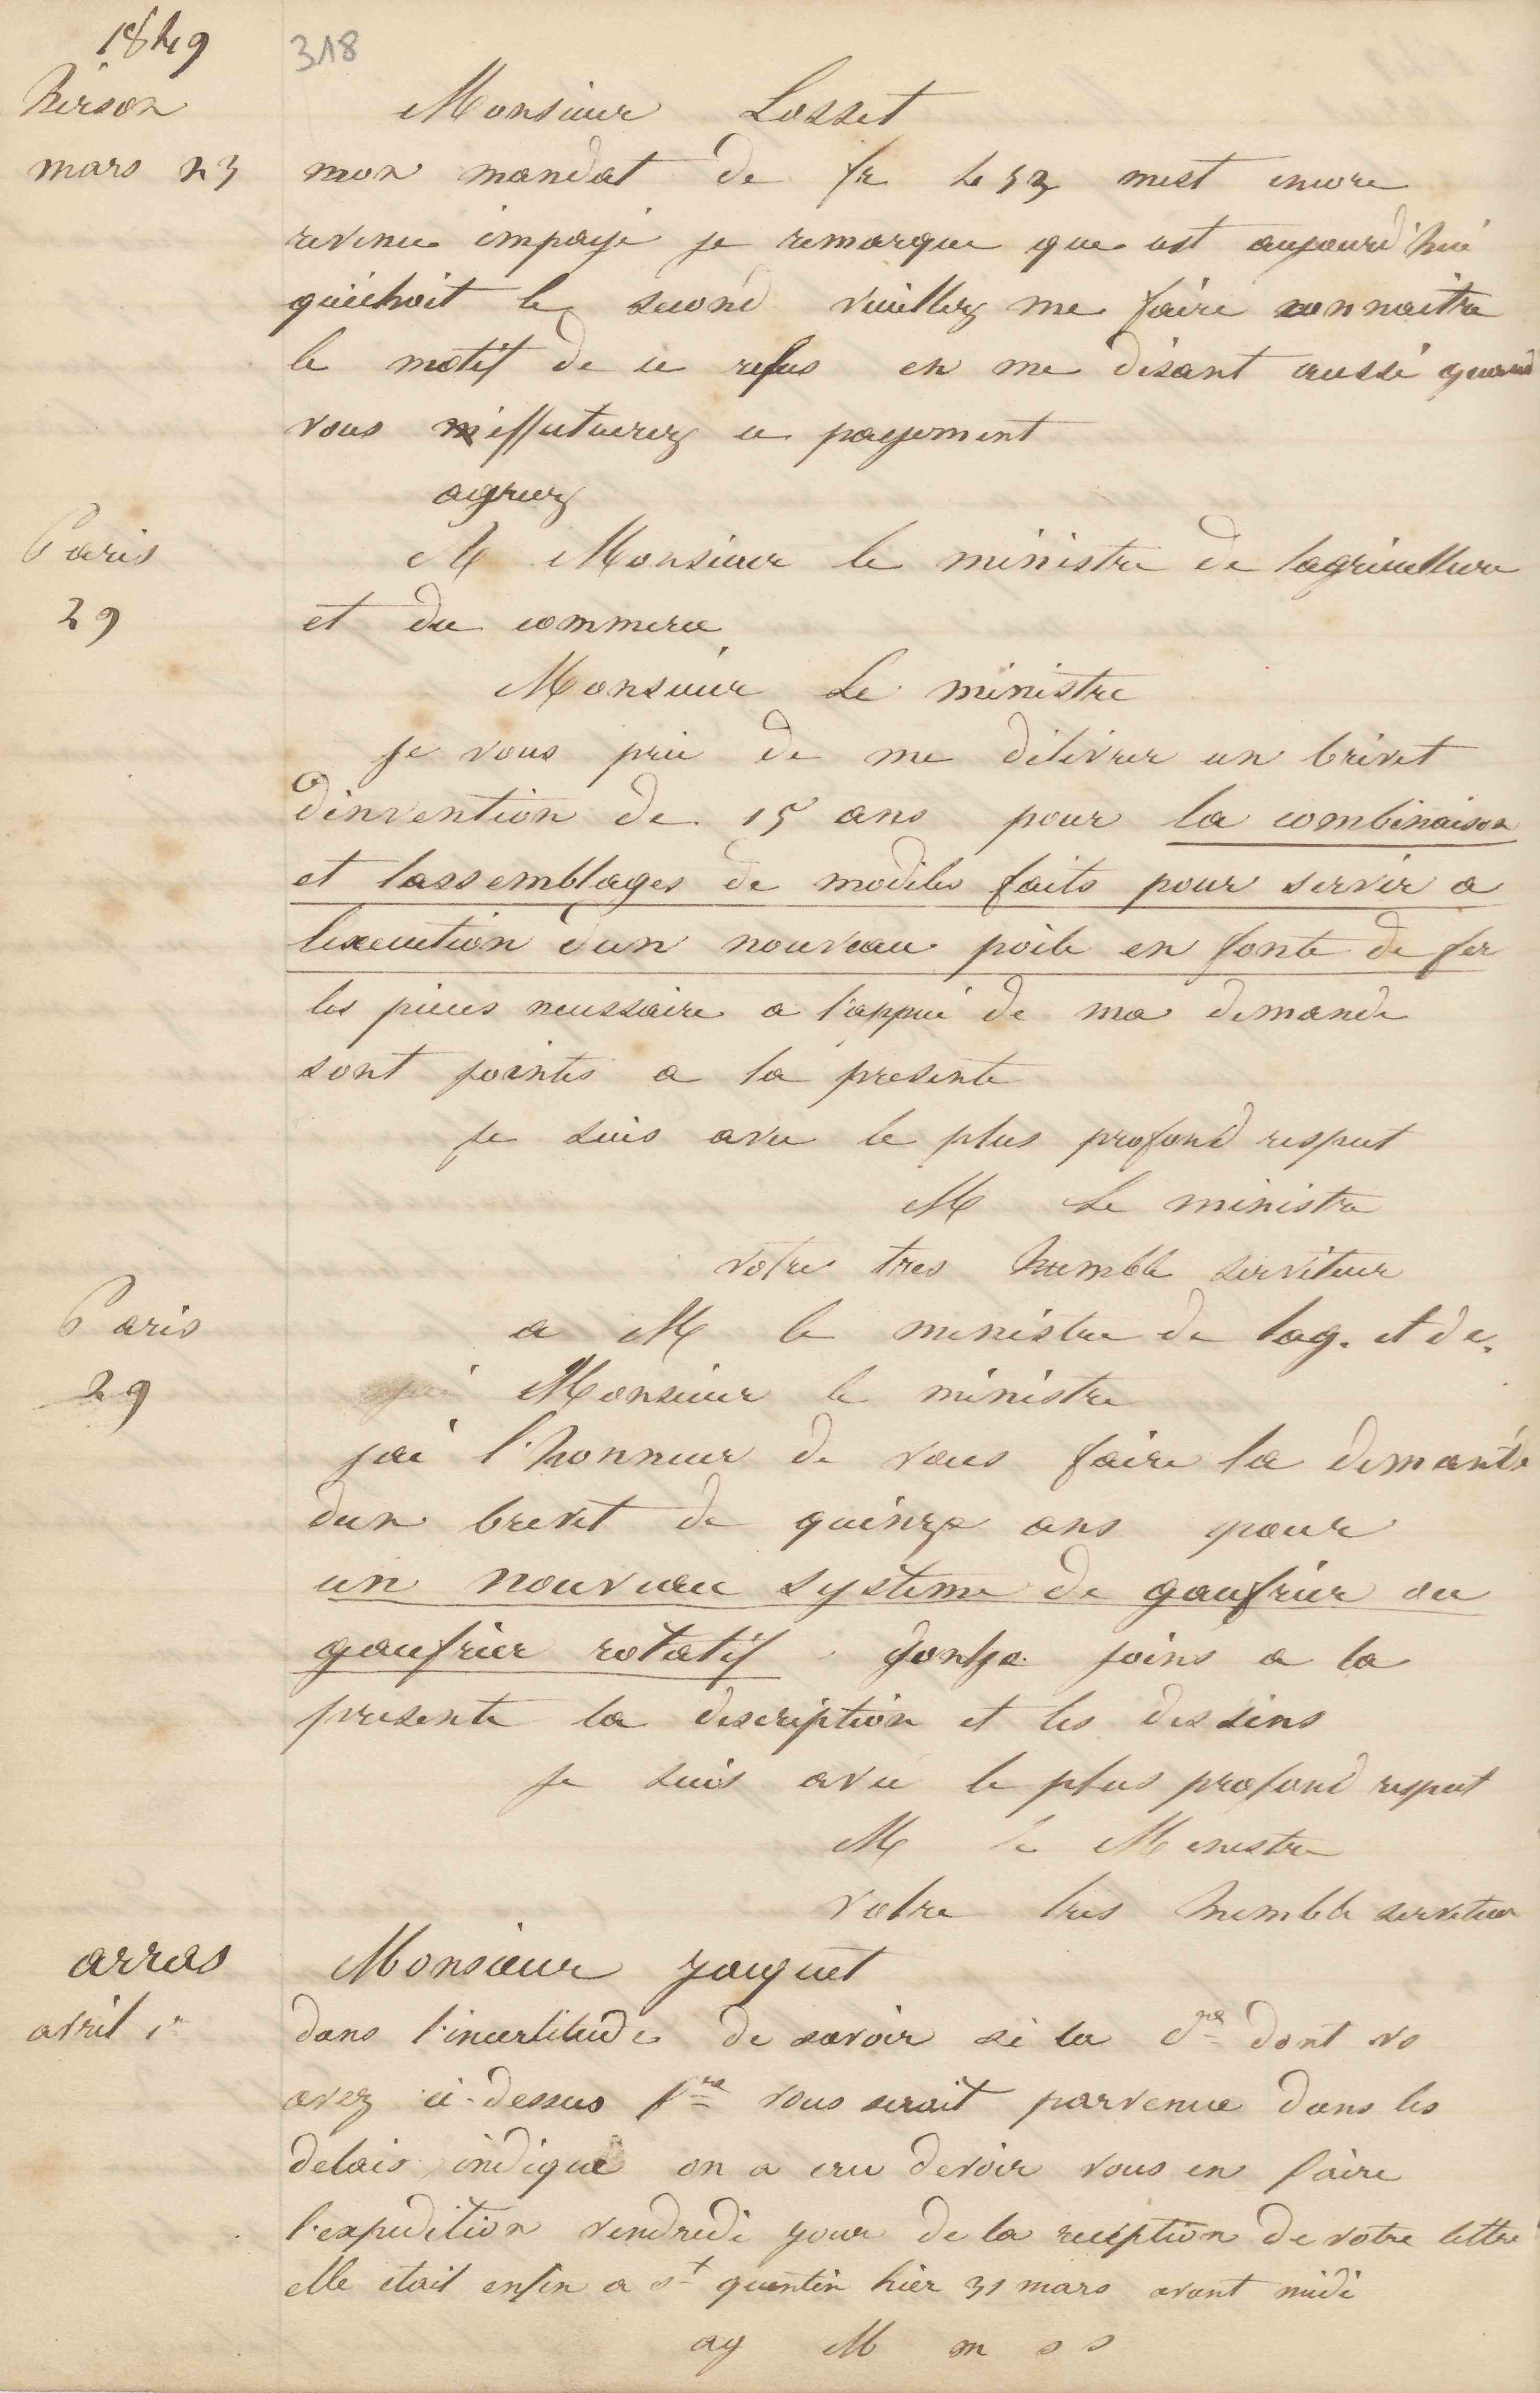 1849
318
hirson
Monsieur Losset
mars 23
mon mandat de fr mest encore
revenu impayé je remarque que cest aujourd'hui
quiéchoit le second veuillez me faire connaitre
le motif de ce refus en me disant aussi quand
vous effectuerez ce payement
agreez
Paris
M Monsieur le ministre de lagriculture
29
et du commerce
Monsieur Le ministre
je vous prie de me délivrer un brevet
dinvention de 15 ans pour la combinaison
et lassemblages de modéles faits pour servir a
lexecution dun nouveau poële en fonte de fer
les pieces necessaire a l'appui de ma demande
sont jointes a la presente
je suis avec le plus profond respect
M Le ministre
votre tres humble serviteur
Paris
a M le ministre de lag. et de.
29
Monsieur le ministre
jai l'honneur de vous faire la demande
dun brevet de quinze ans pour
un nouveau systeme de gaufrier ou
gaufrier rotatif dontje joins a la
presente la description et les dessins
je suis avec le plus profond respect
M le Ministre
votre tres humble serviteur
arras
Monsieur Jacquet
avril 1r
dans l'incertitude de savoir si la dont vs
avez ci-dessus fre vous serait parvenue dans les
delais indiqué on a cru devoir vous en faire
l'expedition vendredi jour de la reception de votre lettre
elle etait enfin a st quentin hier 31 mars avant midi
ag M m s s